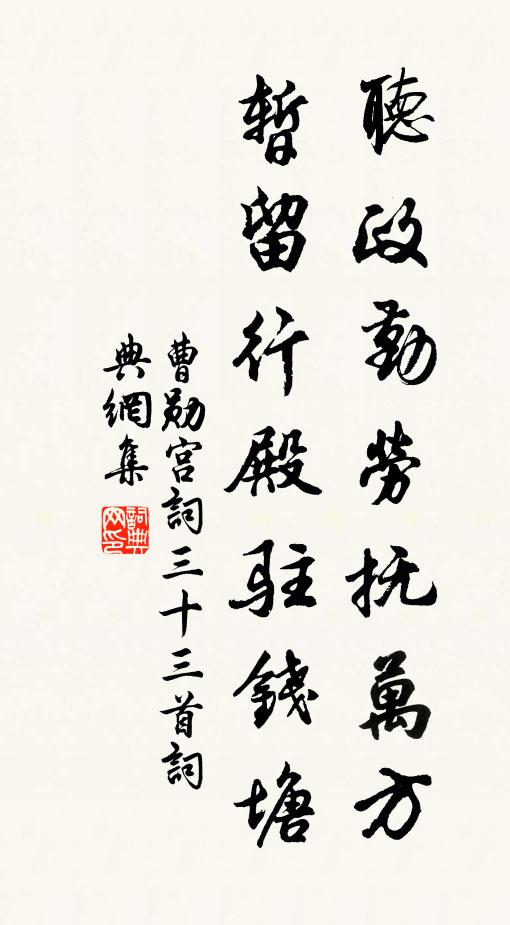 聽政勤勞抚萬方
暫留行殿駐錢塘
曹勛宫詞三十三首詞
典網集
詞典网印